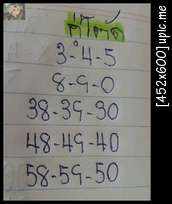 3-4-5
8-9-0
38-39-30
48-49-40
58-59-50
[452x600] upic.me